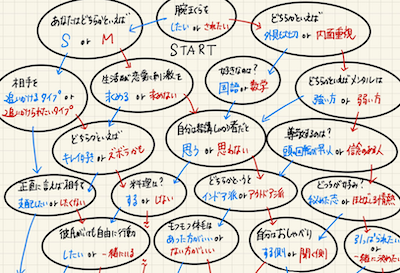 腕まくらを
したい or されたい
START
あなたはどちらかといえば
S or M
どちらかといえば
外見も大切 or 内面重視
相手を
追いかけるタイプ
or 追いかけられたいタイプ
生活面や恋愛に刺激を
求める or 求めない
好きなのは?
国語 or 数学
どちらかといえばメンタルは
強い方 or 弱い方
どちらかといえば
キレイ好き or ズボラかも
自分は結構しっかり者だと
思う or 思わない
尊敬するのは?
or 信念のある人
正直に言えば相手を
支配したい or したくない
料理は?
する or しない
どちらかというと
インドア派 or アウトドア派
どっちが好み?
or ほとばしる情熱
彼氏がいても自由に行動
したい or 一緒にいる
モフモフ体毛は
あった方がいい or
ない方がいい
自分はおしゃべり
する側 or 聞く側
or
一緒に決めたい